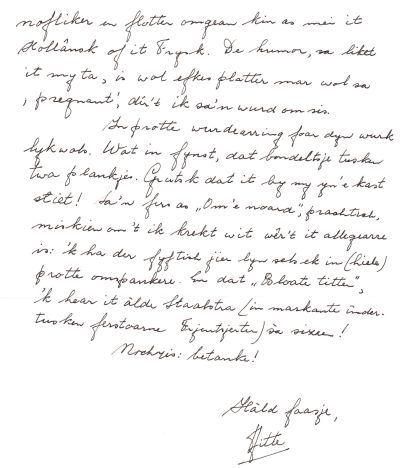 nofliker en flotter omgean kin as mei it
Hollânsk of it Frysk. De humor, sa liket
it my ta, is wol efkes platter mar wol sa
'pregnant', din't ik sa'n wurd om sis.
In protte wurdearring foar dyn wurk
lykwols. Wat in fynst, dat bondeltsje tusken
twa plankjes. Grutsk dat it by my yn'e kast
stiet! Sa'n fers as "Om'e noard", prachtich,
miskien om't ik krekt wit wêr't it allegearre
is: 'k ha der fyftich jier lyn sels ek in (hiele)
protte omspankere. En dat "Bloate titten",
'k hear it âlde Staalstra (in markante ûnder-
tusken ferstoarne) sa sizzen!
Nochris: betanke!
Hâld faasje,